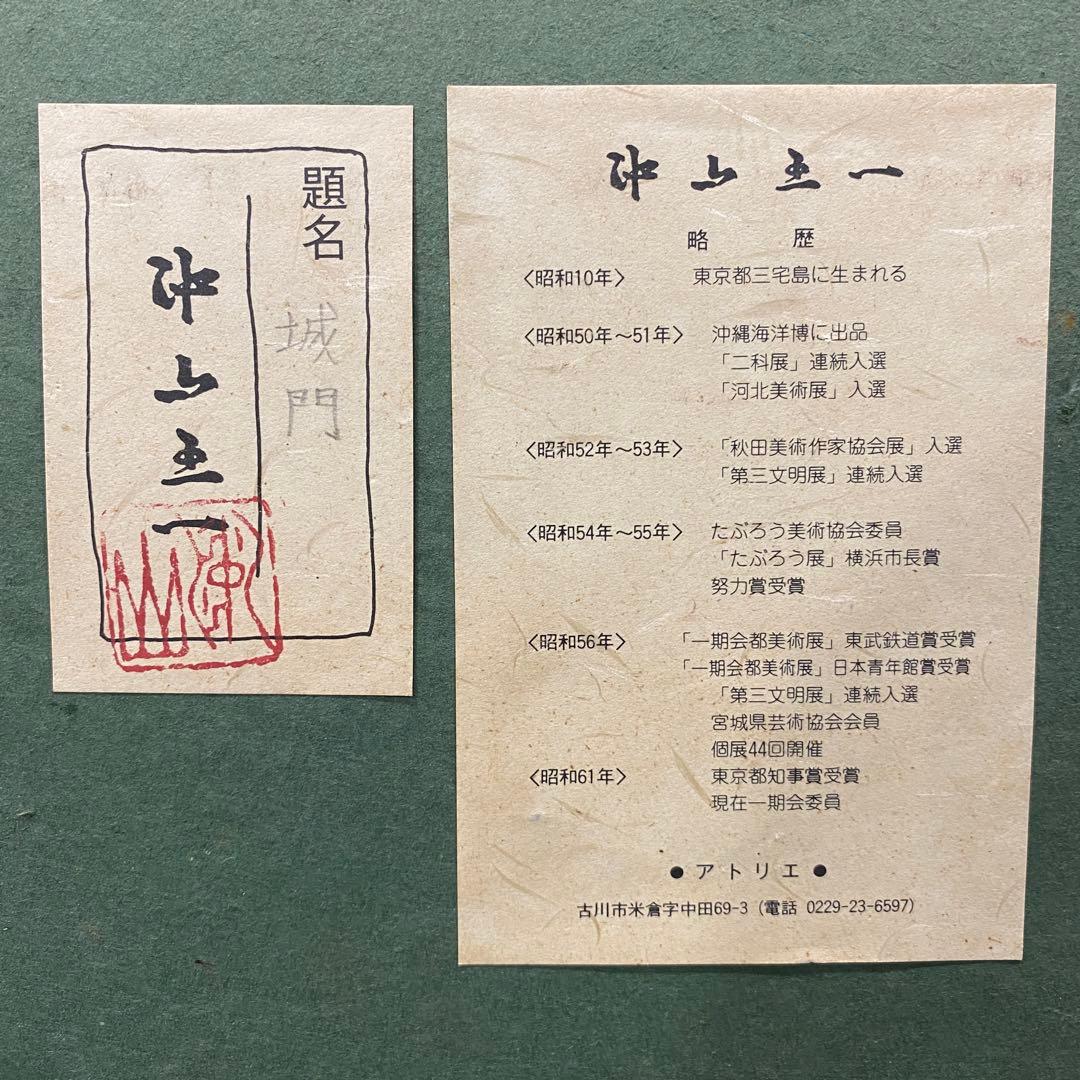 題名
城門
沖山 一
略 歴
〈昭和10年〉 東京都三宅島に生まれる
〈昭和50年〜51年〉 沖縄海洋博に出品
「二科展」連続入選
「河北美術展」入選
〈昭和52年〜53年〉 「秋田美術作家協会展」入選
「第三文明展」連続入選
〈昭和54年〜55年〉 たぶろう美術協会委員
「たぶろう展」横浜市長賞
努力賞受賞
〈昭和56年〉 「一期会都美術展」東武鉄道賞受賞
「一期会都美術展」日本青年館賞受賞
「第三文明展」連続入選
宮城県芸術協会会員
個展44回開催
〈昭和61年〉 東京都知事賞受賞
現在一期会委員
●アトリエ●
古川市米倉字中田69-3 (電話 0229-23-6597)